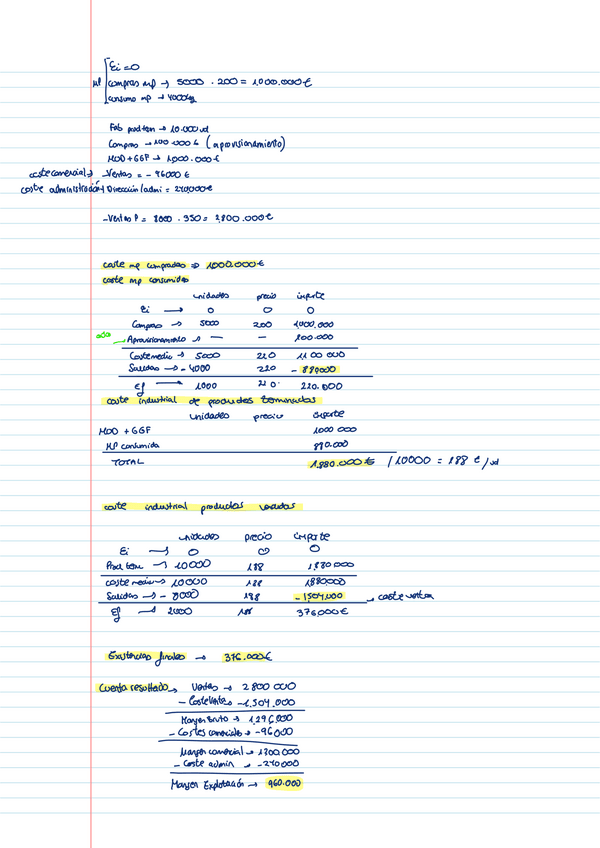 Ei = 0
MP compras mp → 5000 . 200 = 1.000.000 €
consumo mp → 4000 kg
Fab prod term → 10.000 ud
Compras → 100 000 € (aprovisionamiento)
MOD + GGF → 1.000.000 €
coste comercial → -Ventas = - 96000 €
coste administración + Dirección/admi = 240.000 €
- Ventas P = 8000 . 350 = 2.800.000 €
coste mp compradas ⇒ 1.000.000 €
coste mp consumidas
unidades precio importe
Ei → 0 0 0
Compras → 5000 200 1000.000
Aprovisionamiento → — — 100.000
Coste medio → 5000 220 1100 000
Salidas → - 4000 220 - 880000
Ef → 1000 220. 220.000
coste industrial de productos terminados
unidades precio importe
MOD + GGF 1000 000
MP consumida 880.000
TOTAL 1.880.000 € / 10000 = 188 € / ud
coste industrial productos vendidos
unidades precio importe
Ei → 0 0 0
Prod term → 10000 188 1880000
coste medio → 10000 188 1880000
Salidas → - 8000 188 - 1.504.000 → coste ventas
Ef → 2000 188 376.000 €
Existencias finales → 376.000 €
Cuenta resultado → Ventas → 2 800 000
- Coste Venta → -1.504.000
Margen Bruto → 1.296.000
- Costes comerciales → -96000
Margen comercial → 1200.000
- Coste admin → -240000
Margen Explotación → 960.000